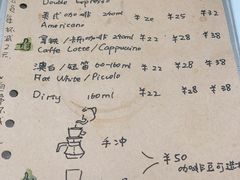 Double Espresso
美式咖啡 240ml ¥20 ¥25 ¥32
Americano
拿铁/卡布 240ml ¥22 ¥28 ¥38
Caffe Latte/Cappuccino
澳白/短笛 60-160ml ¥22 ¥28 ¥38
Flat White/Piccolo
Dirty 160ml ¥22 ¥28 ¥38
手冲
¥50
咖啡豆可进